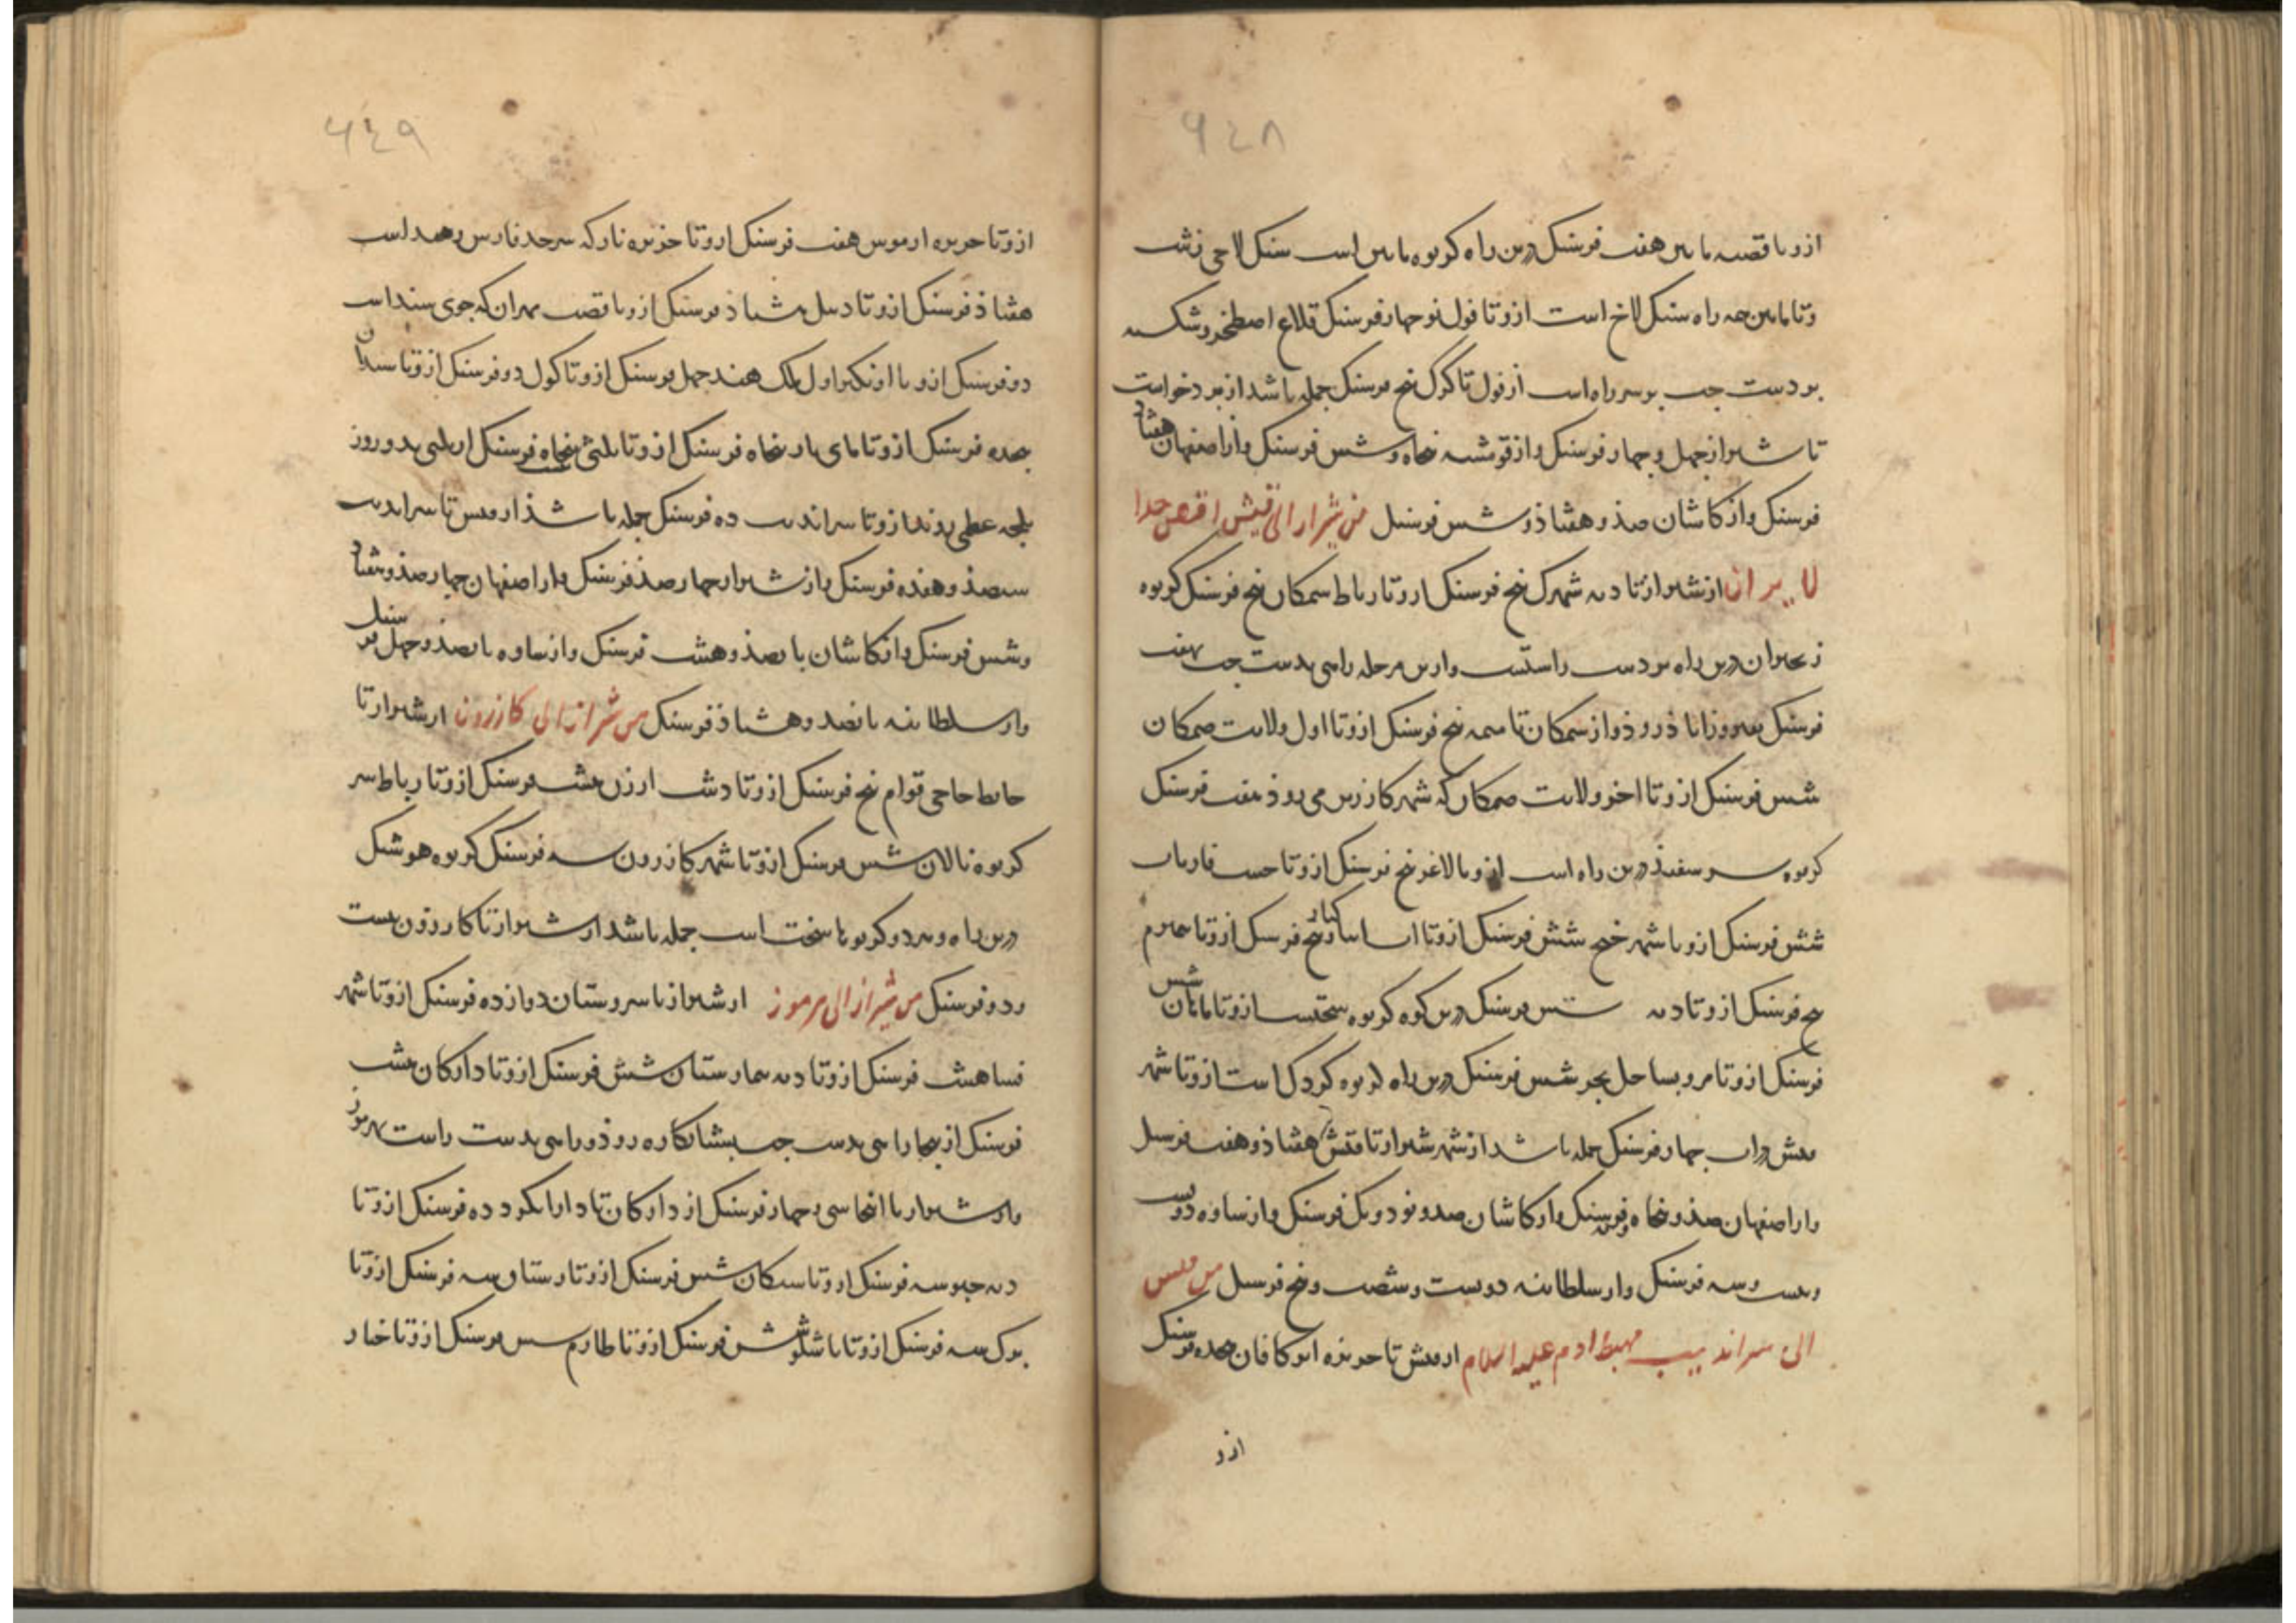 ۶۴۸
ازو تا قصبه ماین هفت فرسنک درین راه کریوه ماین است سنک لاخی زشت
و تا ماین همه راه سنک لاخ است ازو تا فول نو چهار فرسنک قلاع اصطخر و شکسته
بر دست چب بر سر راه است از فول تا کرک پنج فرسنک جمله باشد از یزدخواست
تا شیراز چهل و چهار فرسنک و از قومشه پنجاه و شس فرسنک و از اصفهان هفتاد
فرسنک و از کاشان صذ و هشتاذ و شس فرسنک من شیراز الی قیش اقصی حد
ایران از شیراز تا دیه شهرک پنج فرسنک ازو تا رباط سمکان پنج فرسنک کریوه
زنجیران درین راه بر دست راستست و ازین مرحله راهی بدست چب بهفت
فرسنک بفیروزاباذ روذ و از سمکان تا میمه پنج فرسنک ازو تا اول ولایت صمکان
شس فرسنک ازو تا اخر ولایت صمکان که شهر کارزین می بوذ هفت فرسنک
کریوه سر سفیذ درین راه است ازو تا لاغر پنج فرسنک ازو تا فاریاب
شش فرسنک ازو تا شهر خنج شش فرسنک ازو تا کنار پنج فرسنک ازو تا هیرم
پنج فرسنک ازو تا دیه شس فرسنک درین کوه کریوه سختست ازو تا ماهان شس
فرسنک ازو تا هرو بساحل بحر شس فرسنک درین راه کریوه کردک است ازو تا شهر
قیش در اب چهار فرسنک جمله باشد از شهر شیراز تا قیش هشتاذ و هفت فرسنک
و از اصفهان صذ و پنجاه و نه فرسنک و از کاشان صد و نود و یک فرسنک و از ساوه دویست
و بیست و سه فرسنک و از سلطانیه دویست و شصت و پنج فرسنک من قیس
الی سراندیب مهبط ادم علیه السلام از قیش تا جزیره ابرکافان هجده فرسنک
ازو
۶۴۹
ازو تا جزیره ارموس هفت فرسنک ازو تا جزیره نار که سرحد فارس و هند است
هفتاذ فرسنک ازو تا دیبل هشتاذ فرسنک ازو تا قصب مهران که جوی سند است
دو فرسنک ازو تا اونکیر اول ملک هند چهل فرسنک ازو تا کول دو فرسنک ازو تا سندان
هجده فرسنک ازو تا پنجاه فرسنک ازو تا بلنی پنجاه فرسنک از بلنی بدو روز
بلجه عظمی روند ازو تا سراندیب ده فرسنک جمله باشذ از قیس تا سراندیب
سیصذ و هفده فرسنک و از شیراز چهار صذ فرسنک و از اصفهان چهار صذ و هفتاد
و شس فرسنک و از کاشان پانصذ و هشت فرسنک و از ساوه پانصذ و چهل فرسنک
و از سلطانیه پانصد و هشتاذ فرسنک من شیراز الی کازرون از شیراز تا
حایط حاجی قوام پنج فرسنک ازو تا دشت ارزن هشت فرسنک ازو تا رباط سر
کریوه مالان شس فرسنک ازو تا شهر کازرون سه فرسنک کریوه هوشنک
درین راه و هر دو کریوها سخت است جمله باشد از شیراز تا کازرون بیست
و دو فرسنک من شیراز الی هرموز از شیراز تا سروستان دوازده فرسنک ازو تا شهر
فسا هشت فرسنک ازو تا دیه تمارستان شش فرسنک ازو تا دارکان هشت
فرسنک از ینجا راهی بدست چب بشبانکاره روذ و راهی بدست راست بهرموز
و از شیراز تا انجا سی و چهار فرسنک از دارکان تا دارابکرد ده فرسنک ازو تا
دیه خیر سه فرسنک ازو تا شبانکان شس فرسنک ازو تا رستاق سه فرسنک ازو تا
برک سه فرسنک ازو تا تاشلو شش فرسنک ازو تا طارم شس فرسنک ازو تا